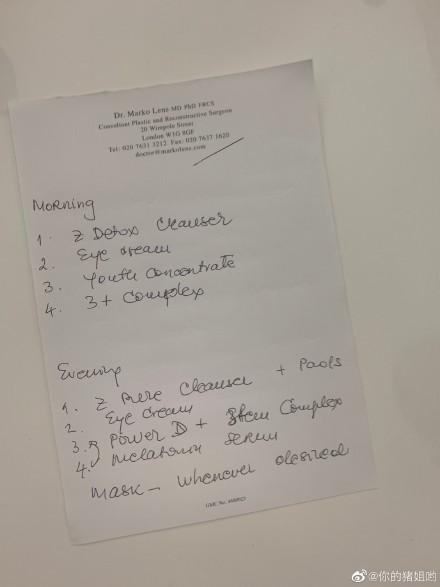 Dr. Marko Lens MD PhD FRCS
Consultant Plastic and Reconstructive Surgeon
20 Wimpole Street
London W1G 8GF
Tel: 020 7631 3212 Fax: 020 7637 1620
doctor@markolens.com
Morning
1. Z Detox Cleanser
2. Eye cream
3. Youth Concentrate
4. 3+ Complex
Evening
1. Z Pure Cleanser + Pads
2. Eye Cream
3. Power D + Stem Complex
4. Melatonin serum
Mask – whenever desired
GMC No.
@你的猪姐哟